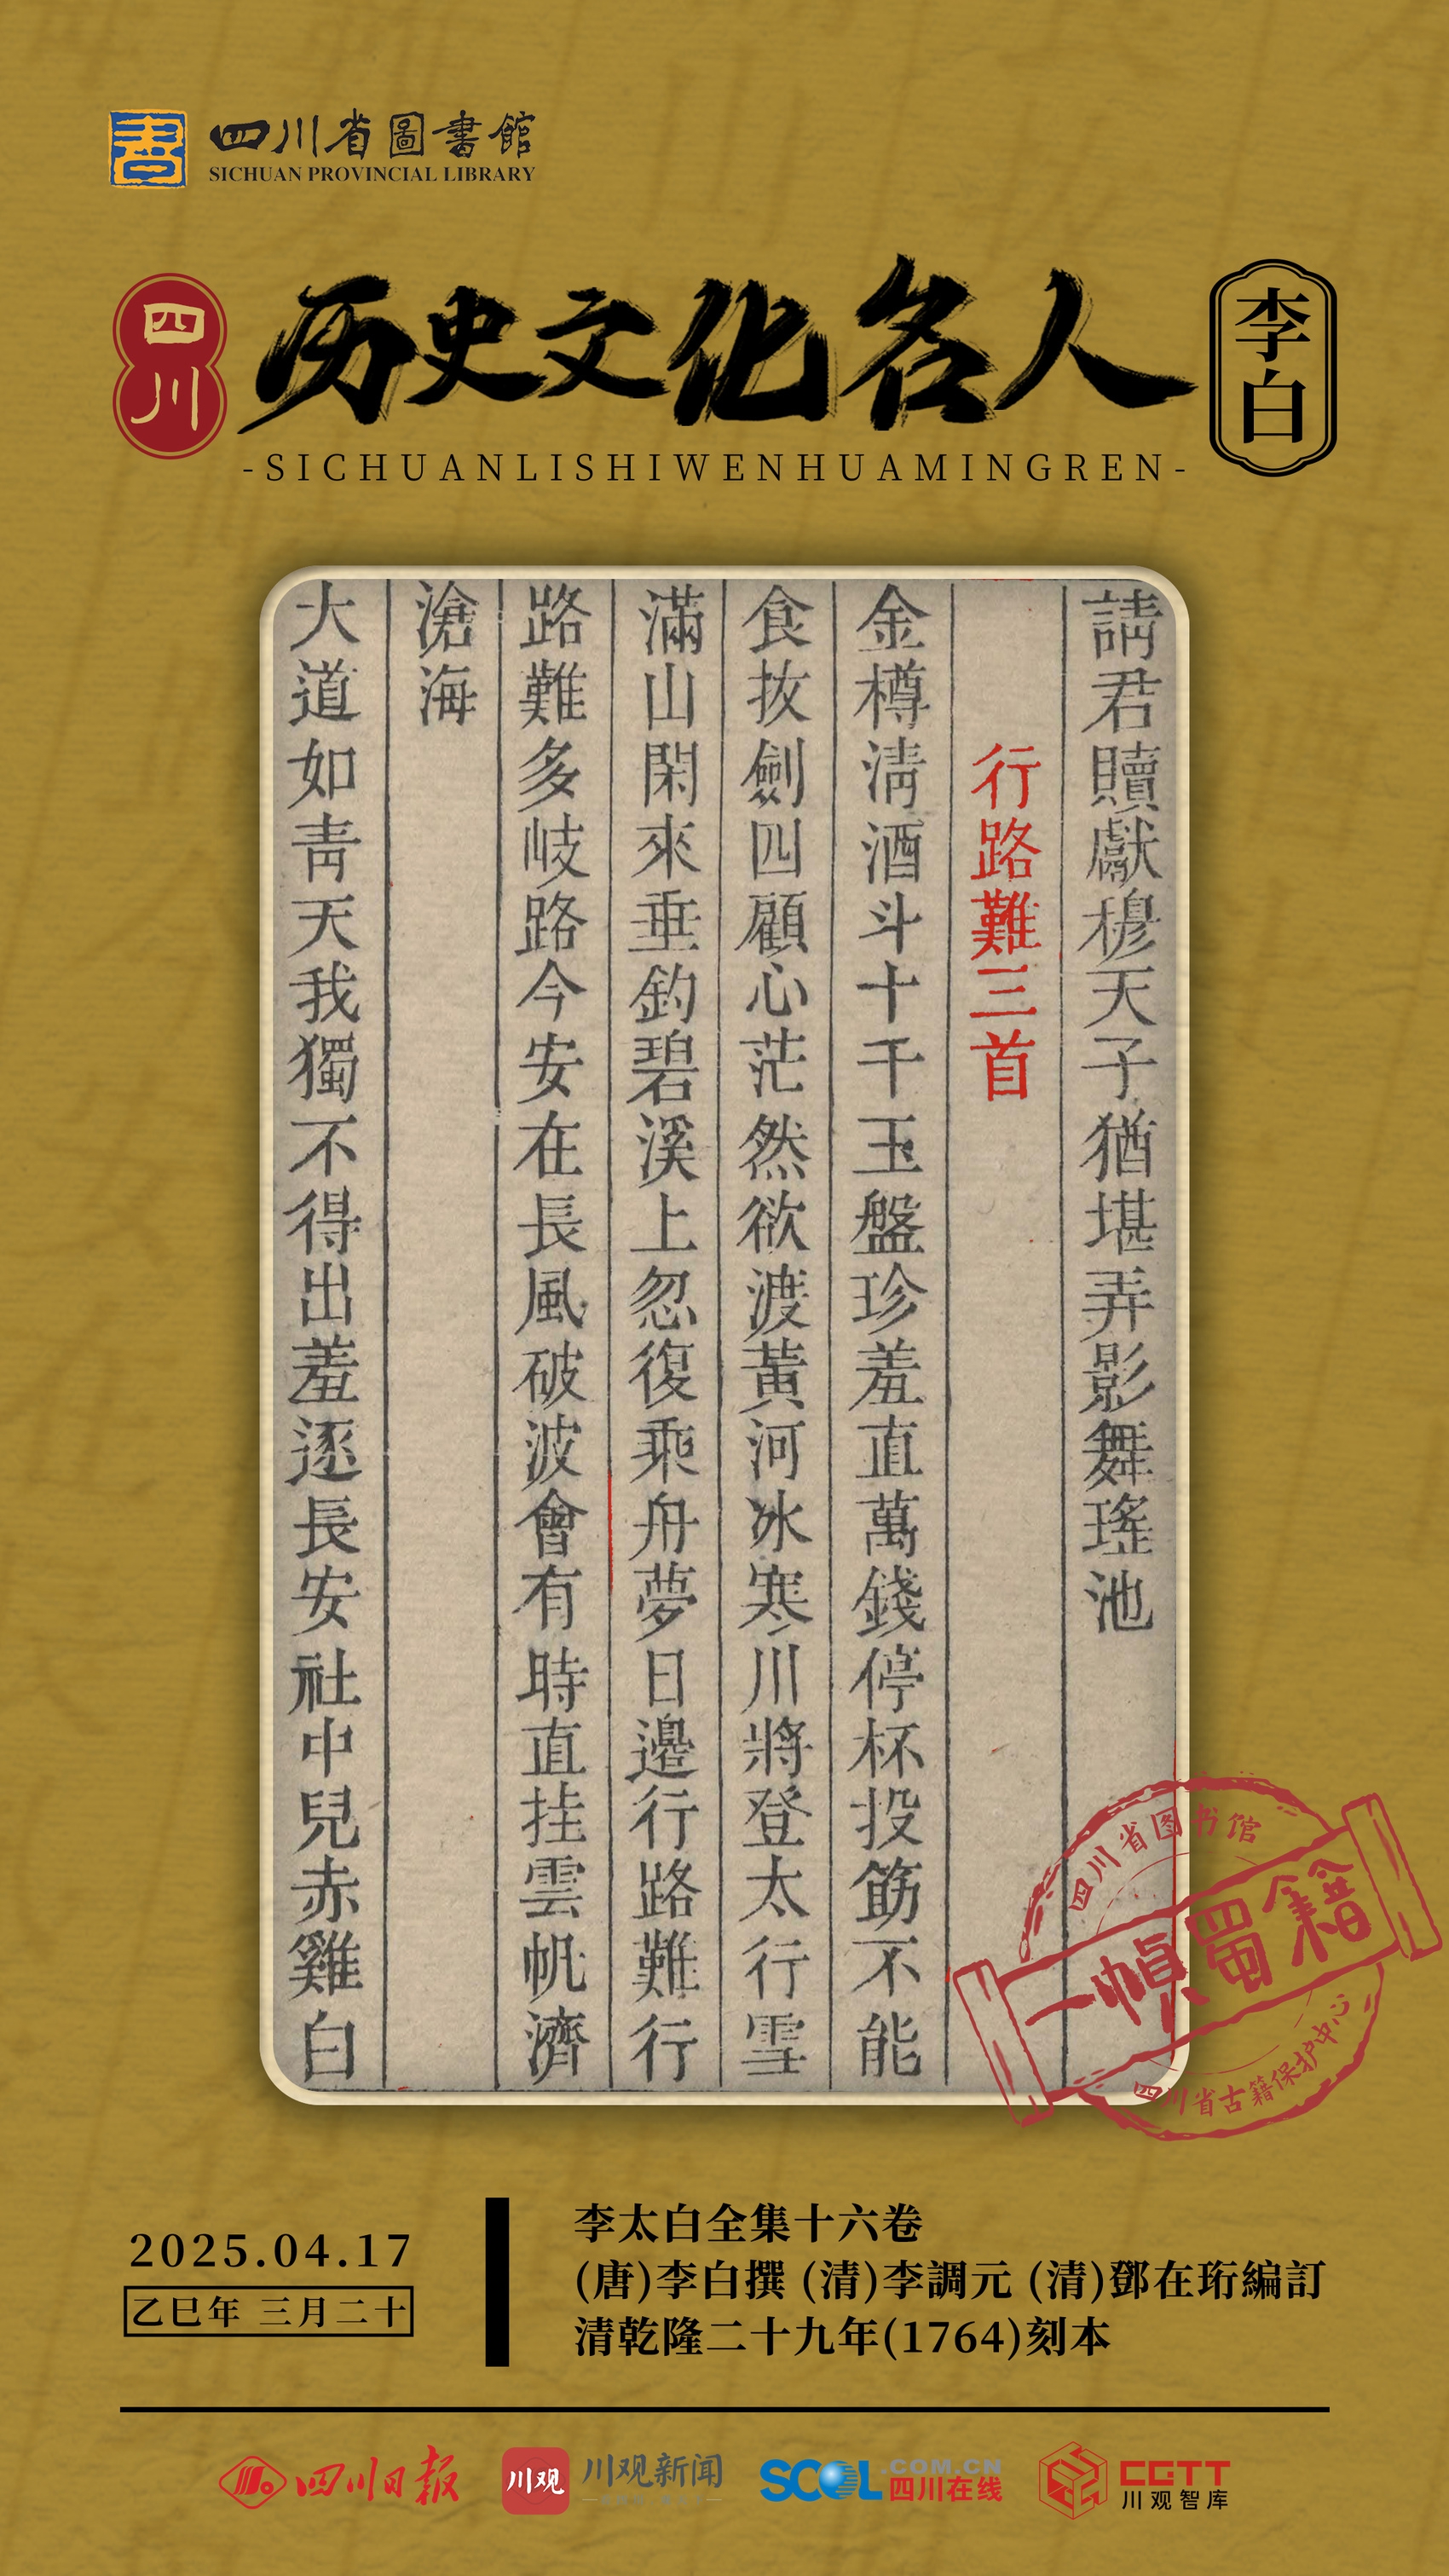 書
四川省圖書館
SICHUAN PROVINCIAL LIBRARY
四川
历史文化名人
李白
-SICHUANLISHIWENHUAMINGREN-
請君贖獻穆天子猶堪弄影舞瑤池
行路難三首
金樽清酒斗十千玉盤珍羞直萬錢停杯投筯不能
食拔劍四顧心茫然欲渡黃河冰寒川將登太行雪
滿山閑來垂釣碧溪上忽復乘舟夢日邊行路難行
路難多岐路今安在長風破波會有時直挂雲帆濟
滄海
大道如靑天我獨不得出羞逐長安社中兒赤雞白
四川省图书馆
一幀蜀籍
四川省古籍保护中心
2025.04.17
乙巳年 三月二十
李太白全集十六卷
(唐)李白撰 (清)李調元 (清)鄧在珩編訂
清乾隆二十九年(1764)刻本
四川日报
川观
川观新闻
SCOL.COM.CN
四川在线
CGTT
川观智库